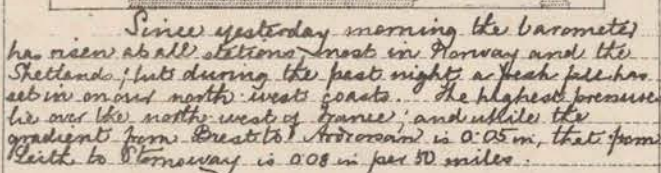 Since yesterday morning the barometer
has risen at all stations, most in Norway and the
Shetlands; but during the past night a fresh fall has
set in on our north west coasts. The highest pressures
lie over the north west of France; and while the
gradient from Brest to Ardrossan is 0.05 in, that from
Leith to Stornoway is 0.08 in per 50 miles.